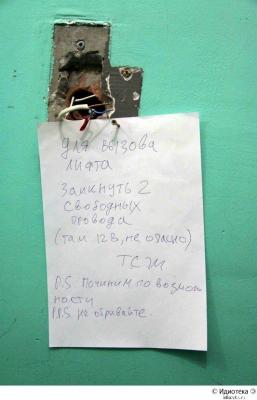 Для вызова
лифта
Замкнуть 2
свободных
провода
(там 12В, не опасно)
ТСЖ
P.S Починим по возмож
ности
P.P.S не обрывайте
© Идиотека